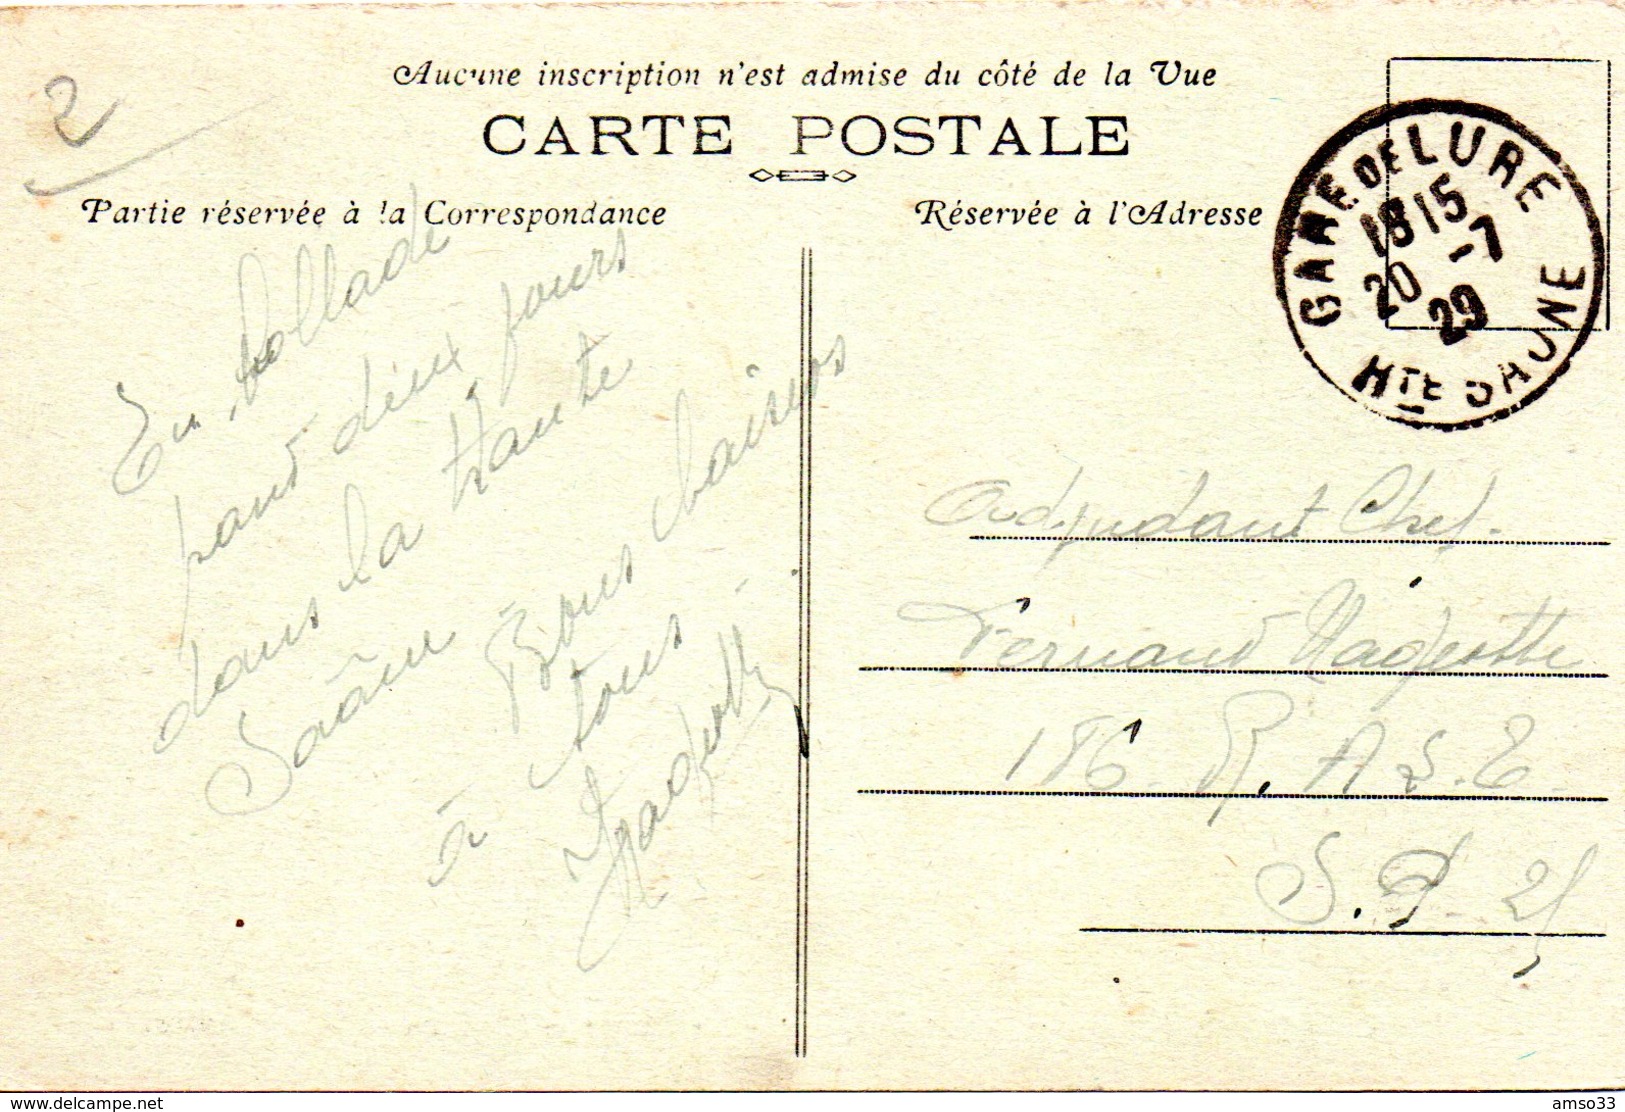 2
Aucune inscription n'est admise du côté de la Vue
CARTE POSTALE
Partie réservée à la Correspondance
Réservée à l'Adresse
GARE DE LURE
18 15
20 -7
29
HTE SAONE
En ballade
pour deux jours
dans la Haute
Saône
Bons baisers
à tous -
Adjudant Chef.
Fernand
186 R. A L. E
S. P. 25
www.delcampe.net
amso33